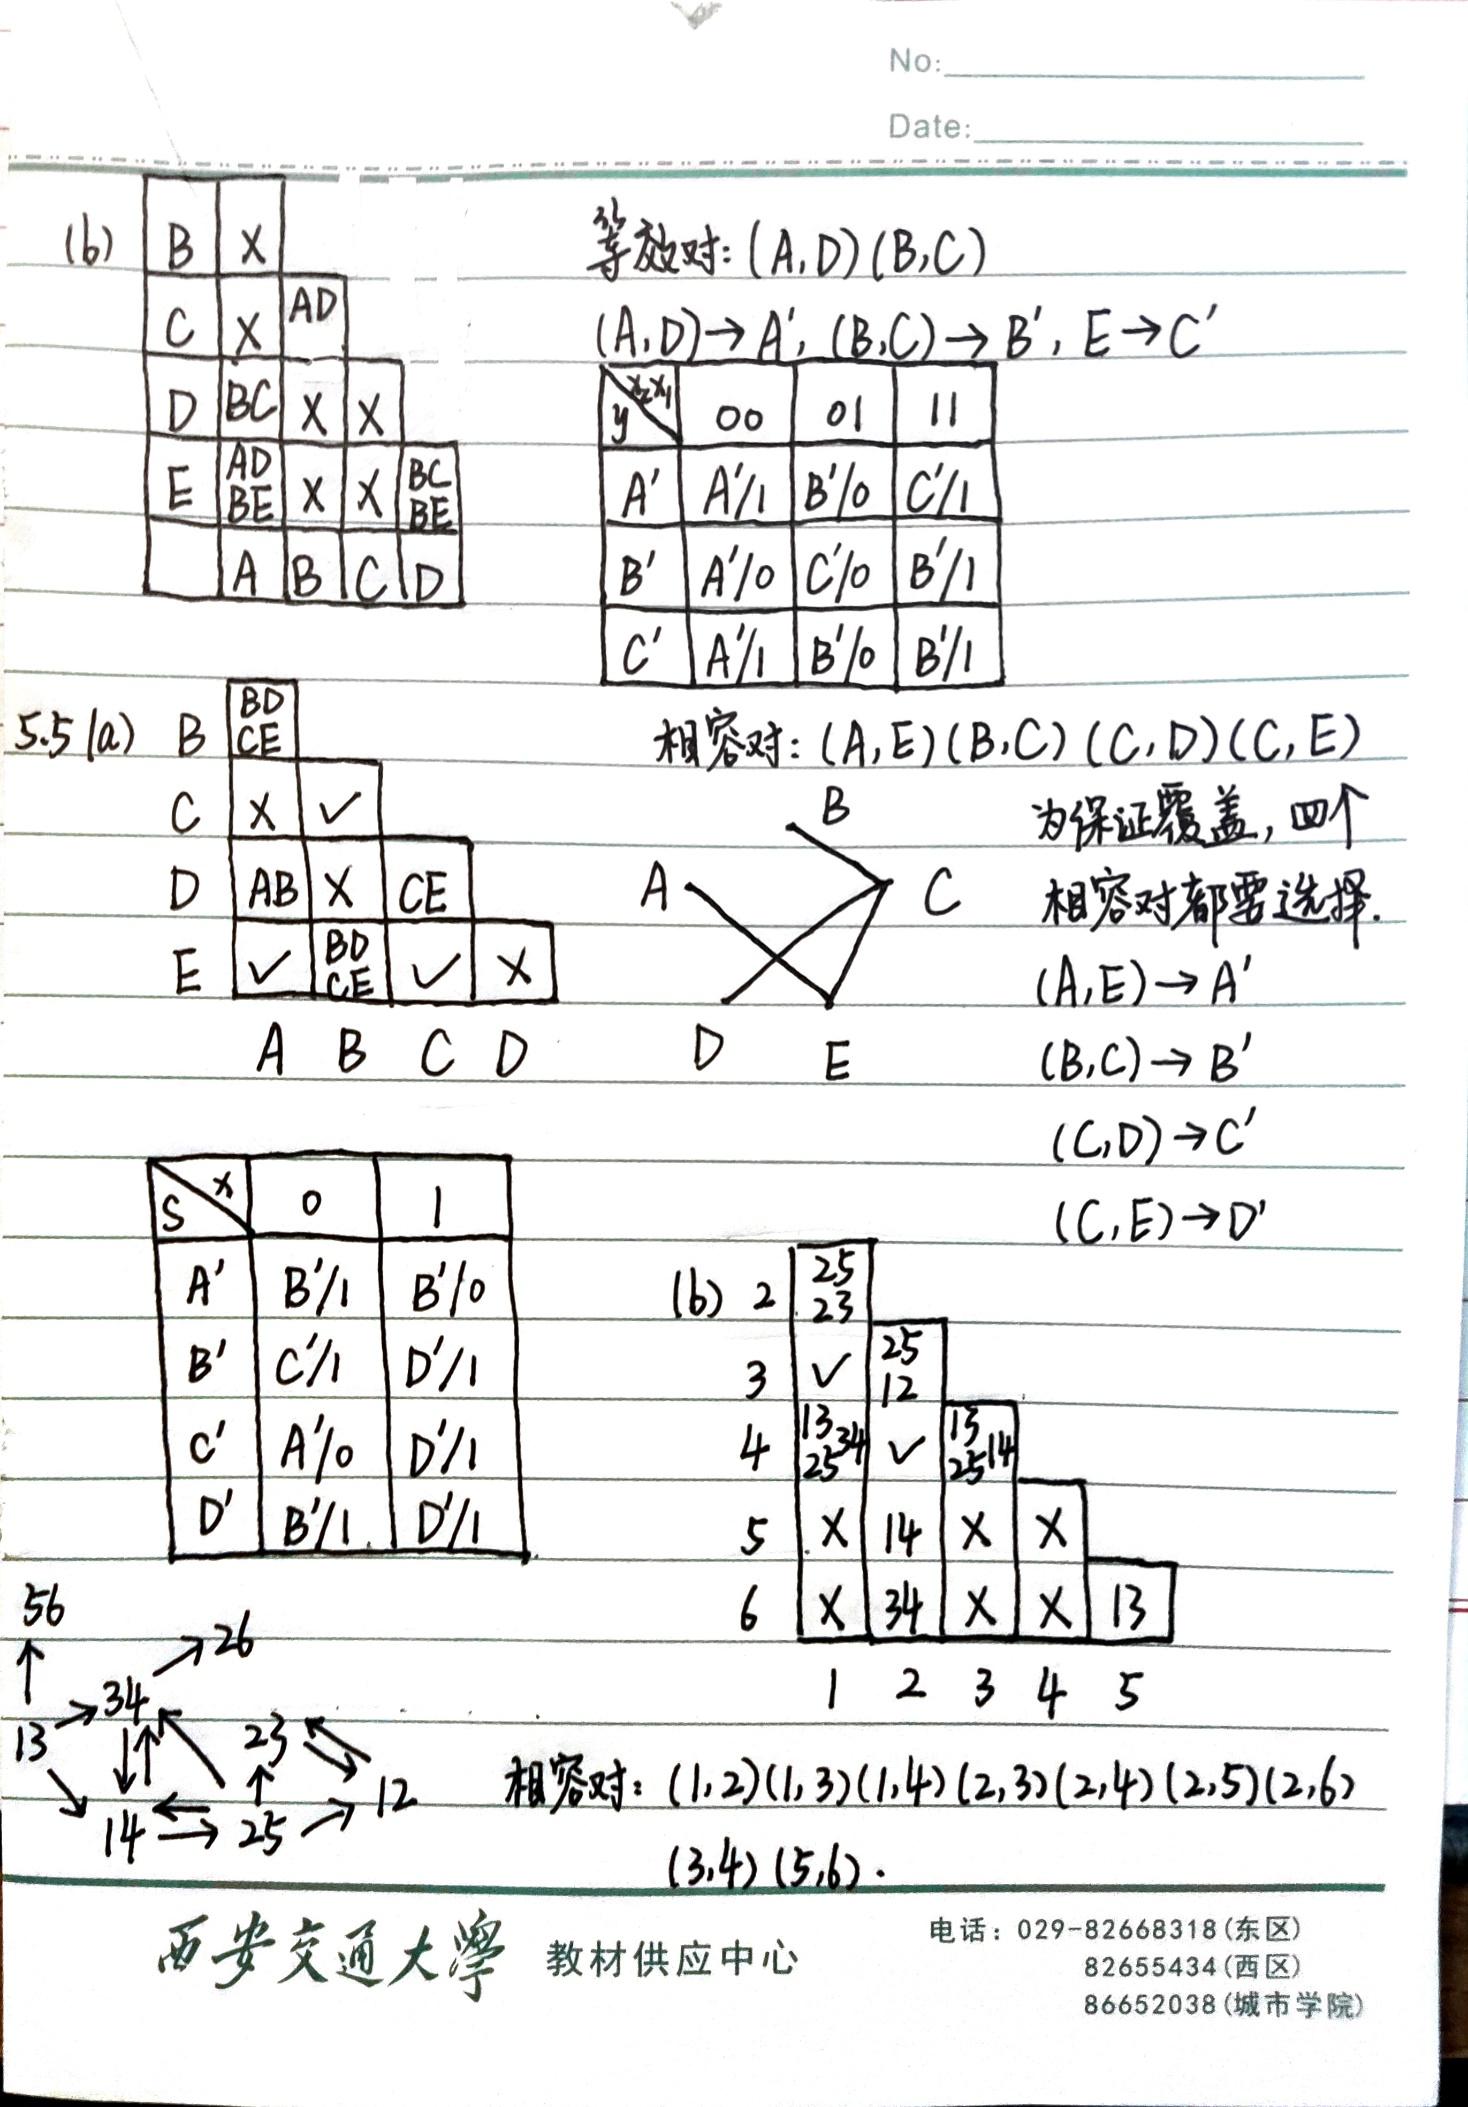 No:
Date:
(b) B X
C X AD
D BC X X
E AD BE X X BC BE
A B C D
等效对: (A,D) (B,C)
(A,D)→A', (B,C)→B', E→C'
y x₂x₁ 00 01 11
A' A'/1 B'/0 C'/1
B' A'/0 C'/0 B'/1
C' A'/1 B'/0 B'/1
5.5 (a) B BD CE
C X ✓
D AB X CE
E ✓ BD CE ✓ X
A B C D
相容对: (A,E) (B,C) (C,D) (C,E)
B
A C
D E
为保证覆盖, 四个
相容对都要选择.
(A,E)→A'
(B,C)→B'
(C,D)→C'
(C,E)→D'
S x 0 1
A' B'/1 B'/0
B' C'/1 D'/1
C' A'/0 D'/1
D' B'/1 D'/1
(b) 2 25 23
3 ✓ 25 12
4 13 34 25 ✓ 13 14 25
5 X 14 X X
6 X 34 X X 13
1 2 3 4 5
56
26
34
13 23
12
14 25
相容对: (1,2) (1,3) (1,4) (2,3) (2,4) (2,5) (2,6)
(3,4) (5,6).
西安交通大学 教材供应中心
电话: 029-82668318(东区)
82655434(西区)
86652038(城市学院)